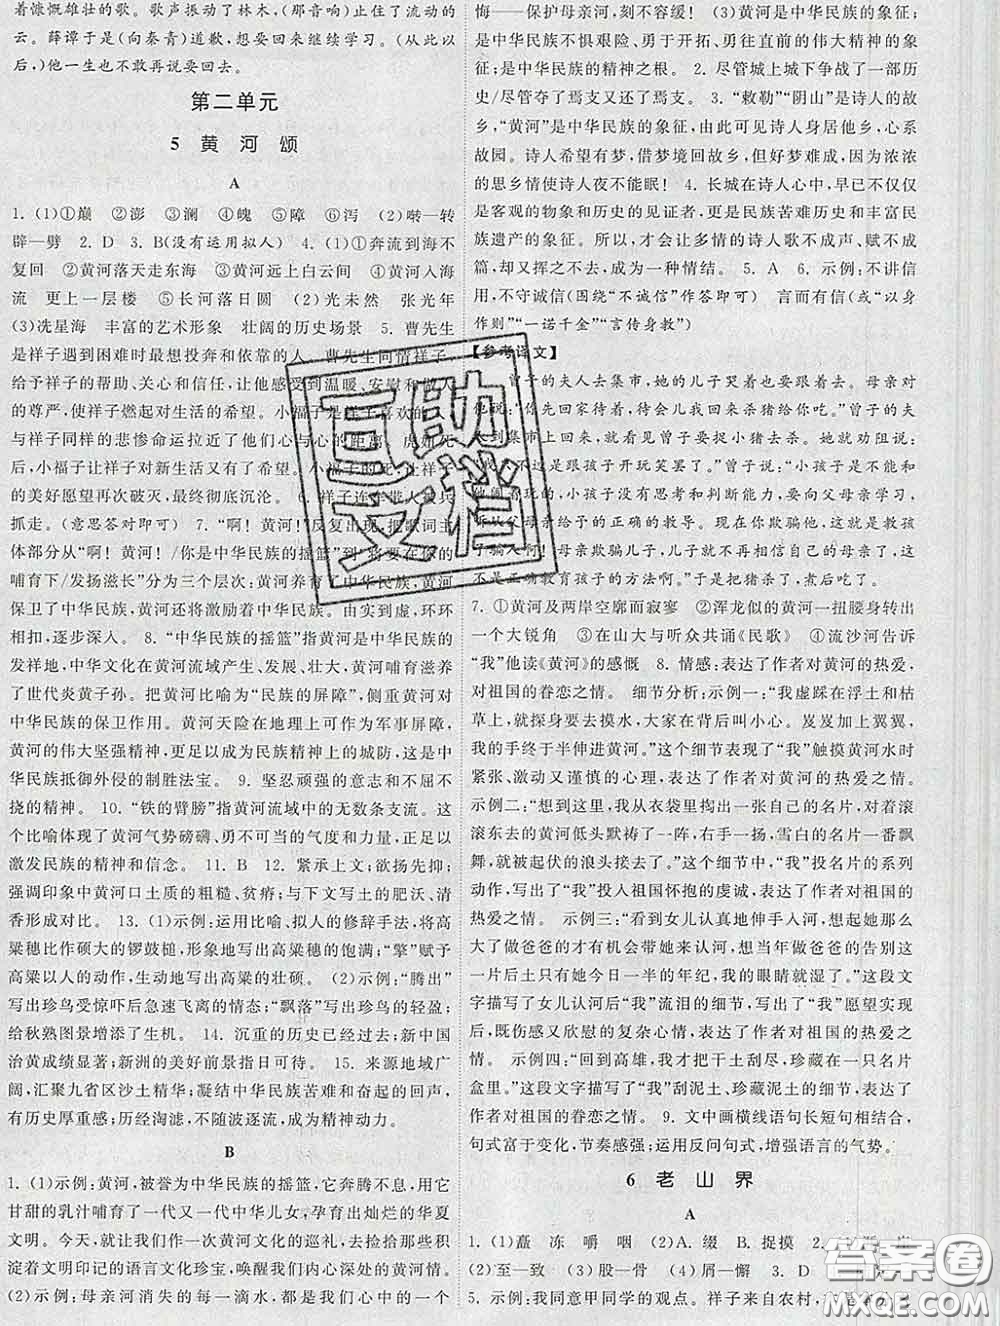 着慷慨雄壮的歌。歌声振动了林木，(那音响)止住了流动的
云。薛谭于是(向秦青)道歉，想要回来继续学习。(从此以
后，)他一生也不敢再说要回去。
第二单元
5 黄 河 颂
A
1. (1)①巅 ②澎 ③澜 ④魄 ⑤障 ⑥泻 (2)啭—转
辟—劈 2. D 3. B(没有运用拟人) 4. (1)①奔流到海不
复回 ②黄河落天走东海 ③黄河远上白云间 ④黄河入海
流 更上一层楼 ⑤长河落日圆 (2)光未然 张光年
(3)冼星海 丰富的艺术形象 壮阔的历史场景 5. 曹先生
是祥子遇到困难时最想投奔和依靠的人。曹先生同情祥子，
给予祥子的帮助、关心和信任，让他感受到温暖、安慰和做人
的尊严，使祥子燃起对生活的希望。小福子是祥子喜欢的人，
与祥子同样的悲惨命运拉近了他们心与心的距离。虎妞死
后，小福子让祥子对新生活又有了希望。小福子的死，让祥子
的美好愿望再次破灭，最终彻底沉沦。 6. 祥子连车带人被兵
抓走。(意思答对即可) 7. “啊！黄河！”反复出现，把歌词主
体部分从“啊！黄河！/你是中华民族的摇篮”到“将要在你的
哺育下/发扬滋长”分为三个层次：黄河养育了中华民族，黄河
保卫了中华民族，黄河还将激励着中华民族。由实到虚，环环
相扣，逐步深入。 8. “中华民族的摇篮”指黄河是中华民族的
发祥地，中华文化在黄河流域产生、发展、壮大，黄河哺育滋养
了世代炎黄子孙。把黄河比喻为“民族的屏障”，侧重黄河对
中华民族的保卫作用。黄河天险在地理上可作为军事屏障，
黄河的伟大坚强精神，更足以成为民族精神上的城防，这是中
华民族抵御外侵的制胜法宝。 9. 坚忍顽强的意志和不屈不
挠的精神。 10. “铁的臂膀”指黄河流域中的无数条支流。这
个比喻体现了黄河气势磅礴、勇不可当的气度和力量，正足以
激发民族的精神和信念。 11. B 12. 紧承上文；欲扬先抑；
强调印象中黄河口土质的粗糙、贫瘠；与下文写土的肥沃、清
香形成对比。 13. (1)示例：运用比喻、拟人的修辞手法，将高
粱穗比作硕大的锣鼓槌，形象地写出高粱穗的饱满；“擎”赋予
高粱以人的动作，生动地写出高粱的壮硕。 (2)示例：“腾出”
写出珍鸟受惊吓后急速飞离的情态；“飘落”写出珍鸟的轻盈；
给秋熟图景增添了生机。 14. 沉重的历史已经过去；新中国
治黄成绩显著；新洲的美好前景指日可待。 15. 来源地域广
阔，汇聚九省区沙土精华；凝结中华民族苦难和卓越的历程，
有历史厚重感；历经淘滤，不随波逐流，成为精神动力。
B
1. (1)示例：黄河，被誉为中华民族的摇篮，它奔腾不息，用它
甘甜的乳汁哺育了一代又一代中华儿女，孕育出灿烂的华夏
文明。今天，就让我们以一次黄河文化的巡礼，去捡拾那些积
淀着文明印记的语言文化珍宝，唤醒我们内心深处的黄河情。
(2)示例：母亲河消失的每一滴水，都是我们心中的一个
悔——保护母亲河，刻不容缓！ (3)黄河是中华民族的象征；
是中华民族不惧艰险、勇于开拓、勇往直前的伟大精神的象
征；是中华民族的精神之根。 2. 尽管城上城下争战了一部历
史/尽管夺了焉支又还了焉支。 3. “敕勒”“阴山”是诗人的故
乡，“黄河”是中华民族的象征，由此可见诗人身居他乡，心系
故园。诗人希望有梦，借梦境回故乡，但好梦难成，因为浓浓
的思乡情使诗人夜不能眠！ 4. 长城在诗人心中，早已不仅仅
是客观的物象和历史的见证者，更是民族苦难历史和丰富民
族遗产的象征。所以，才会让多情的诗人歌不成声、赋不成
篇，却又挥之不去，成为一种情结。 5. A 6. 示例：不讲信
用，不守诚信(围绕“不诚信”作答即可) 言而有信(或“以身
作则”“一诺千金”“言传身教”)
【参考译文】
曾子的夫人去集市，她的儿子哭着也要跟着去。母亲对
他说：“你先回家待着，待会儿我回来杀猪给你吃。”曾子的夫
人到集市上回来，就看见曾子要捉小猪去杀。她就劝阻说：
“我只不过是跟孩子开玩笑罢了。”曾子说：“小孩子是不能和
他闹着玩的。小孩子没有思考和判断能力，要向父母亲学习，
听从父母亲给予的正确的教导。现在你欺骗他，这是教孩子
骗人啊！母亲欺骗儿子，儿子就不再相信自己的母亲了，这
不是正确教育孩子的方法啊。”于是把猪杀了，煮后吃了。
7. ①黄河及两岸空廓而寂寥 ②浑龙似的黄河一扭腰身转出
一个大锐角 ③在山大与听众共诵《民歌》 ④流沙河告诉
“我”他读《黄河》的感慨 8. 情感：表达了作者对黄河的热爱，
对祖国的眷恋之情。 细节分析：示例一：“我虚踩在浮土和枯
草上，就探身要去摸水，大家在背后叫小心。岌岌加上翼翼，
我的手终于半伸进黄河。”这个细节表现了“我”触摸黄河水时
紧张、激动又谨慎的心理，表达了作者对黄河的热爱之情。
示例二：“想到这里，我从衣袋里掏出一张自己的名片，对着滚
滚东去的黄河低头默祷了一阵，右手一扬，雪白的名片一番飘
舞，就被起伏的浪头接去了。”这个细节描写了“我”投名片的系列
动作，写出了“我”投入祖国怀抱的虔诚，表达了作者对祖国的
热爱之情。 示例三：“看到女儿认真地伸手入河，想起她那么
大了做爸爸的才有机会带她来认河，想当年做爸爸的告别这
一片后土只有她今日一半的年纪，我的眼睛就湿了。”这段文
字描写了女儿认河后“我”流泪的细节，写出了“我”愿望实现
后，既伤感又欣慰的复杂心情，表达了作者对祖国的热爱之
情。 示例四：“回到高雄，我把干土刮尽，珍藏在一只名片
盒里。”这段文字描写了“我”刮泥土、珍藏泥土的细节，表达了
作者对祖国的眷恋之情。 9. 文中画横线语句长短句相结合，
句式富于变化，节奏感强；运用反问句式，增强语言的气势。
6 老 山 界
A
1. (1)矗 冻 嚼 咽 (2)A. 缀 B. 捉摸 2.
(2)至—致 (3)股—骨 (4)屑—懈 3. D
5. 示例：我同意甲同学的观点。祥子来自农村，
互助文档
答案圈
MXQE.COM